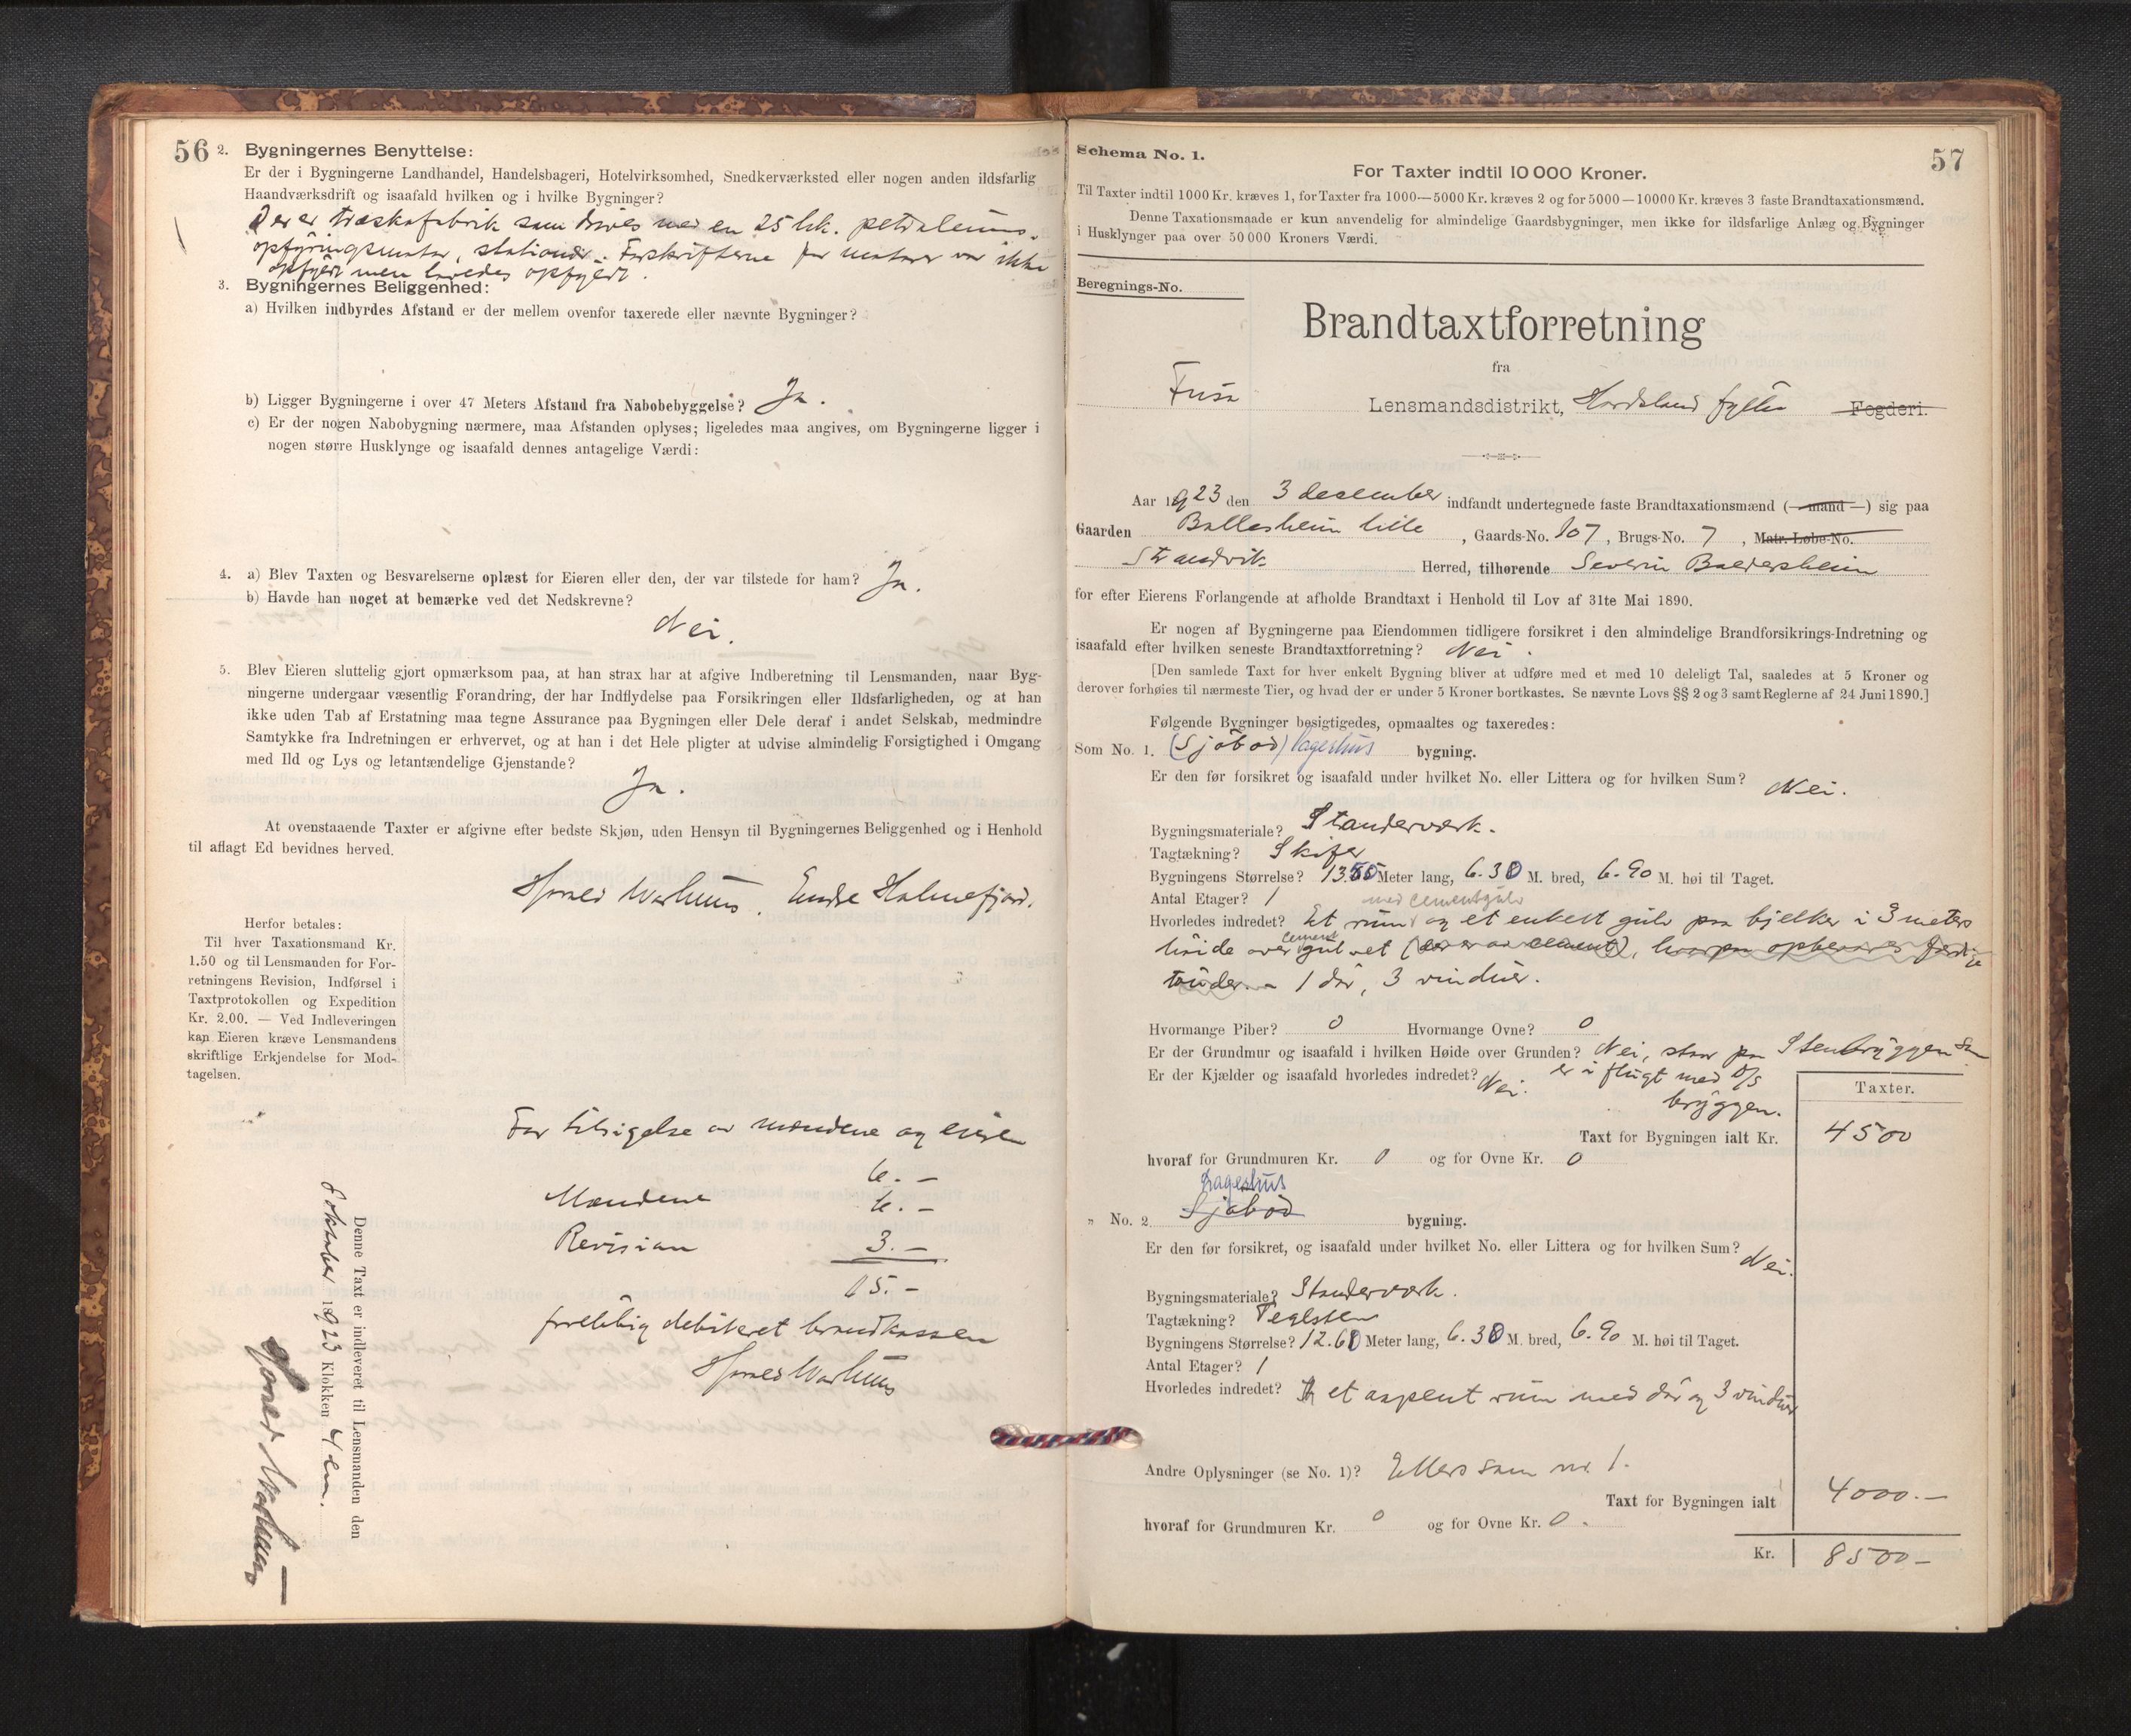 56
2. Bygningernes Benyttelse:
Er der i Bygningerne Landhandel, Handelsbageri, Hotelvirksomhed, Snedkerværksted eller nogen anden ildsfarlig
Haandværksdrift og isaafald hvilken og i hvilke Bygninger?
Der er træskofabrik som drives med en 25 hk. petroleums-
opfyringsmotor, stationær. Forskrifterne for motorer var ikke
opfyldt men lovedes opfyldt.
3. Bygningernes Beliggenhed:
a) Hvilken indbyrdes Afstand er der mellem ovenfor taxerede eller nævnte Bygninger?
b) Ligger Bygningerne i over 47 Meters Afstand fra Nabobebyggelse? Ja.
c) Er der nogen Nabobygning nærmere, maa Afstanden oplyses; ligeledes maa angives, om Bygningerne ligger i
nogen større Husklynge og isaafald dennes antagelige Værdi:
4. a) Blev Taxten og Besvarelserne oplæst for Eieren eller den, der var tilstede for ham? Ja.
b) Havde han noget at bemærke ved det Nedskrevne?
Nei.
5. Blev Eieren sluttelig gjort opmærksom paa, at han strax har at afgive Indberetning til Lensmanden, naar Byg-
ningerne undergaar væsentlig Forandring, der har Indflydelse paa Forsikringen eller Ildsfarligheden, og at han
ikke uden Tab af Erstatning maa tegne Assurance paa Bygningen eller Dele deraf i andet Selskab, medmindre
Samtykke fra Indretningen er erhvervet, og at han i det Hele pligter at udvise almindelig Forsigtighed i Omgang
med Ild og Lys og letantændelige Gjenstande?
Ja.
At ovenstaaende Taxter er afgivne efter bedste Skjøn, uden Hensyn til Bygningernes Beliggenhed og i Henhold
til aflagt Ed bevidnes herved.
Holmefjord.
Herfor betales:
Til hver Taxationsmand Kr.
1.50 og til Lensmanden for For-
retningens Revision, Indførsel i
Taxtprotokollen og Expedition
Kr. 2.00. — Ved Indleveringen
kan Eieren kræve Lensmandens
skriftlige Erkjendelse for Mod-
tagelsen.
For tilsigelse av mændene og eieren
6.-
Mændene 6.-
Revision 3.-
15.-
foreløbig debiteret brandkassen
Denne Taxt er indleveret til Lensmanden den
8 oktober 1923 Klokken 4 em.
57
Schema No. 1.
For Taxter indtil 10 000 Kroner.
Til Taxter indtil 1000 Kr. kræves 1, for Taxter fra 1000—5000 Kr. kræves 2 og for 5000—10000 Kr. kræves 3 faste Brandtaxationsmænd.
Denne Taxationsmaade er kun anvendelig for almindelige Gaardsbygninger, men ikke for ildsfarlige Anlæg og Bygninger
i Husklynger paa over 50 000 Kroners Værdi.
Beregnings-No.
Brandtaxtforretning
fra
Fusa Lensmandsdistrikt, Hordaland fylke Fogderi.
Aar 1923 den 3 desember indfandt undertegnede faste Brandtaxationsmænd (— mand —) sig paa
Gaarden Ballesheim lille, Gaards-No. 107, Brugs-No. 7, Matr. Løbe-No.
Strandvik Herred, tilhørende Severin Baldersheim
for efter Eierens Forlangende at afholde Brandtaxt i Henhold til Lov af 31te Mai 1890.
Er nogen af Bygningerne paa Eiendommen tidligere forsikret i den almindelige Brandforsikrings-Indretning og
isaafald efter hvilken seneste Brandtaxtforretning? Nei.
[Den samlede Taxt for hver enkelt Bygning bliver at udføre med et med 10 deleligt Tal, saaledes at 5 Kroner og
derover forhøies til nærmeste Tier, og hvad der er under 5 Kroner bortkastes. Se nævnte Lovs §§ 2 og 3 samt Reglerne af 24 Juni 1890.]
Følgende Bygninger besigtigedes, opmaaltes og taxeredes:
Som No. 1. (Sjøbod) Lagerhus bygning.
Er den før forsikret og isaafald under hvilket No. eller Littera og for hvilken Sum? Nei.
Bygningsmateriale? Standerverk.
Tagtækning? Skifer
Bygningens Størrelse? 13.50 Meter lang, 6.30 M. bred, 6.90 M. høi til Taget.
Antal Etager? 1
med cementgulv
Hvorledes indredet? Et rum og et enkelt gulv paa bjelker i 3 meters
høide over cement gulvet (der er av cement), hvorpaa opbevares færdige
tønder. - 1 dør, 3 vinduer.
Hvormange Piber? 0 Hvormange Ovne? 0
Er der Grundmur og isaafald i hvilken Høide over Grunden? Nei, staar paa Stenbryggen som
er i flugt med D/S
bryggen.
Er der Kjælder og isaafald hvorledes indredet? Nei.
Taxter.
Taxt for Bygningen ialt Kr. 4500
hvoraf for Grundmuren Kr. 0 og for Ovne Kr. 0
Lagerhus
" No. 2 Sjøbod bygning.
Er den før forsikret, og isaafald under hvilket No. eller Littera og for hvilken Sum? Nei.
Bygningsmateriale? Standerverk.
Tagtækning? Teglsten
Bygningens Størrelse? 12.60 Meter lang, 6.30 M. bred, 6.90 M. høi til Taget.
Antal Etager? 1
Hvorledes indredet? et aapent rum med dør og 3 vinduer
Andre Oplysninger (se No. 1)? Ellers som nr. 1.
Taxt for Bygningen ialt 4000.-
hvoraf for Grundmuren Kr. 0 og for Ovne Kr. 0.
Kr. 8500-